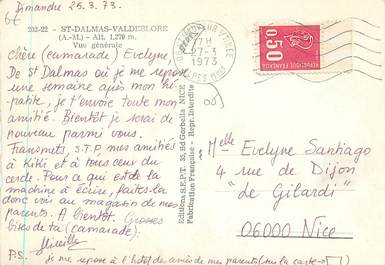 Dimanche 25.3.73.
212-22 - ST-DALMAS-VALDEBLORE
(A.-M.) - Alt. 1.270 m.
Vue générale
Chère (camarade) Evelyne,
De St Dalmas où je me repose
une semaine après mon hé-
patite, je t'envoie toute mon
amitié. Bientôt je serai de
nouveau parmi vous.
Transmets, S.T.P mes amitiés
à Kiki et à tous ceux du
cercle. Pour ce qui est de la
machine à écrire, faites-la
donc voir au magasin de mes
parents. A bientôt. Grosses
bises de ta (camarade).
Mireille
P.S. je me repose à l'hôtel de amis de mes parents (sur la carte →)
Editions S.E.P.T. 36, Bd Gorbella NICE
Fabrication Française - Repr. Interdite
7H
27-3
1973
0,50
Melle Evelyne Santiago
4 rue de Dijon
"Le Gilardi"
06000 Nice